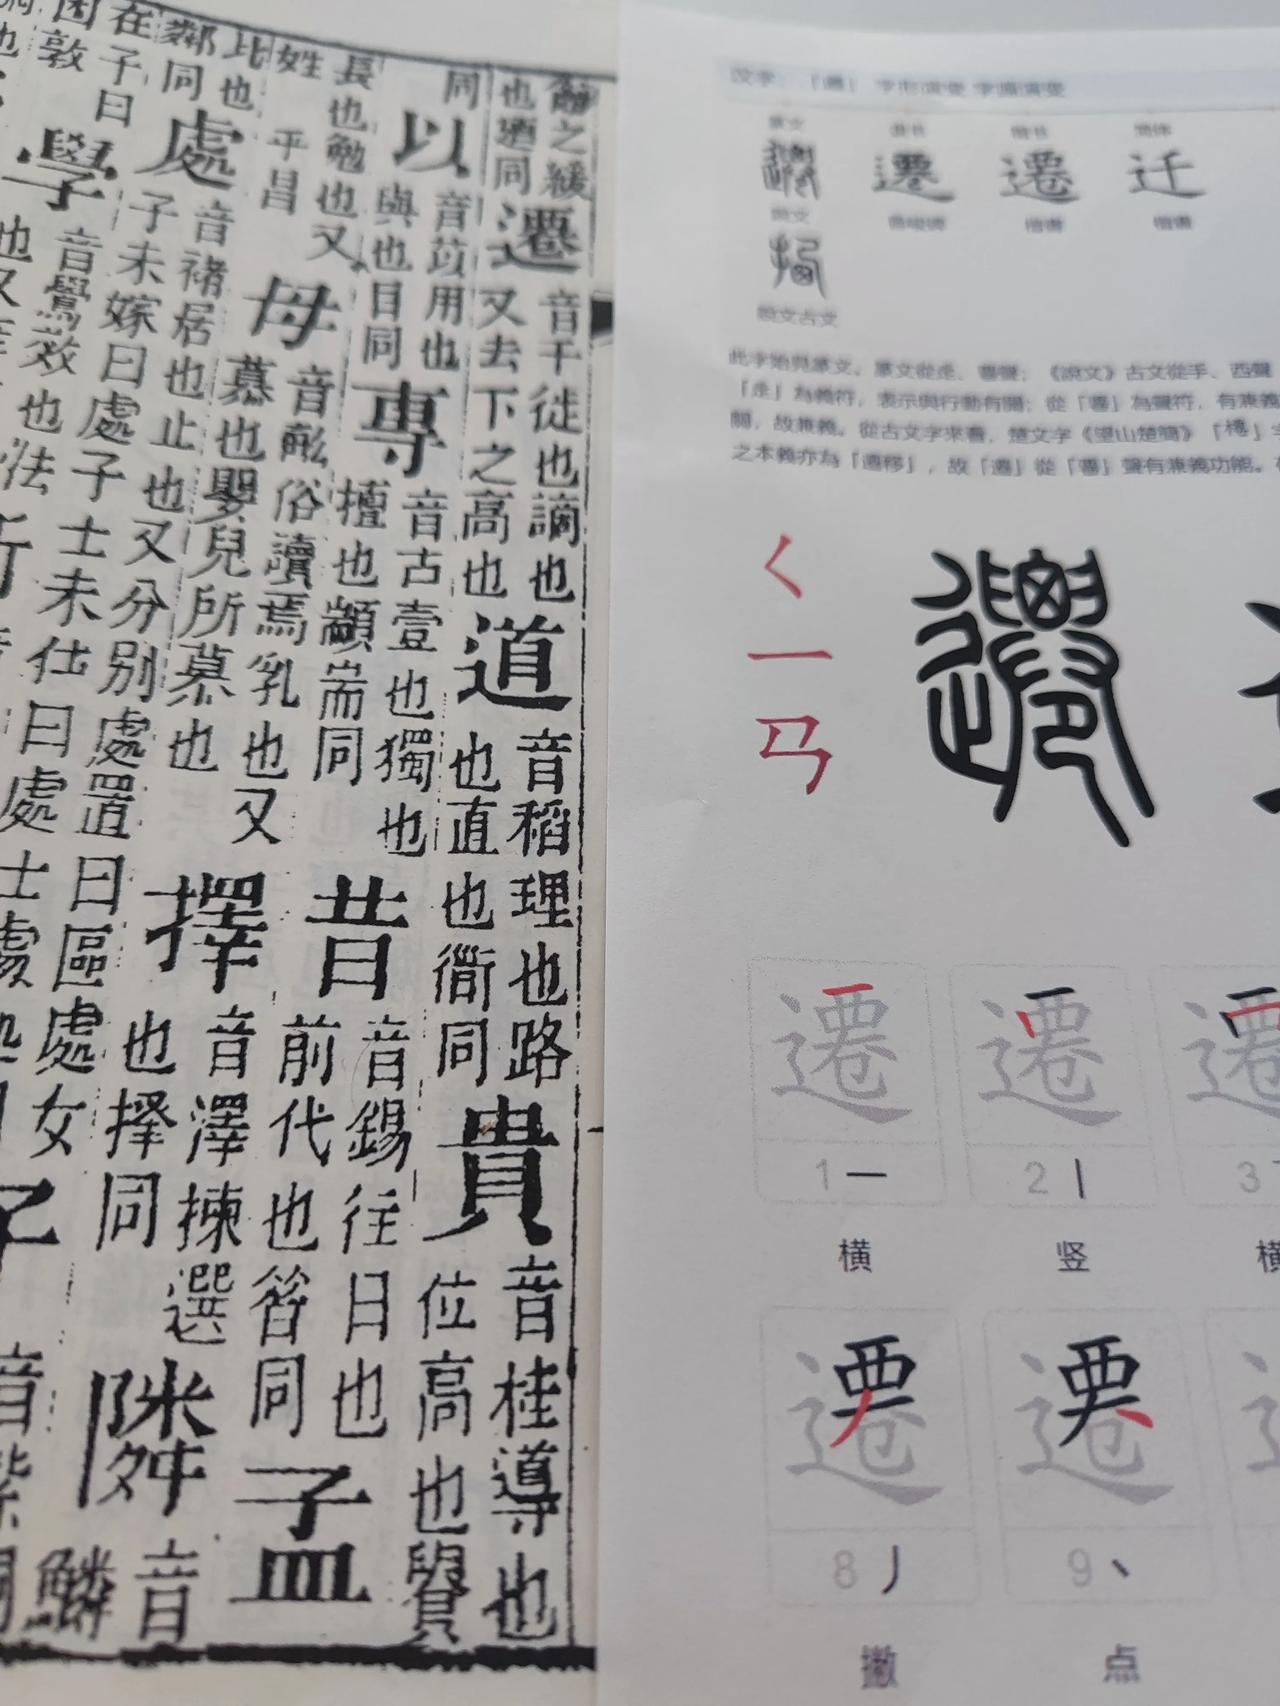 之緩
也迺同
遷
音千徙也謫也
又去下之高也
道
音稻理也路
也直也衟同
貴
音桂導也
位高也
同
以
音苡用也
與也目同
專
音古壹也獨也
擅也顓耑同
昔
音錫往日也
前代也㫺同
孟
長也勉也又
姓 平昌
母
音畝俗讀焉乳也又
慕也嬰兒所慕也
擇
音澤揀選
也择同
音
鱗
比也
鄰同
處
音褚居也止也又分别處置曰區處女
子未嫁曰處子士未仕曰處士處
在子曰
困敦
學
音鷽效也法
也又
子
音
漢字：「遷」 字形演變 字源演變
篆文 隸書 楷書 簡体
遷 遷 遷 迁
說文 楷書 楷書
說文古文
此字始見篆文。篆文從辵、䙴聲；《說文》古文從手、西聲
「辵」為義符，表示與行動有關；從「䙴」為聲符，有兼義
關，故兼義。從古文字來看，楚文字《望山楚簡》「
之本義亦為「遷移」，故「遷」從「䙴」聲有兼義功能。
ㄑ
ㄧ
ㄢ
遷
遷 遷 遷
1 一 2 丨 3
横 竖 横
遷 遷
8 丿 9 丶
撇 点